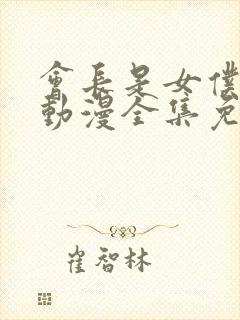 會長是女僕
動漫全集免
崔智林